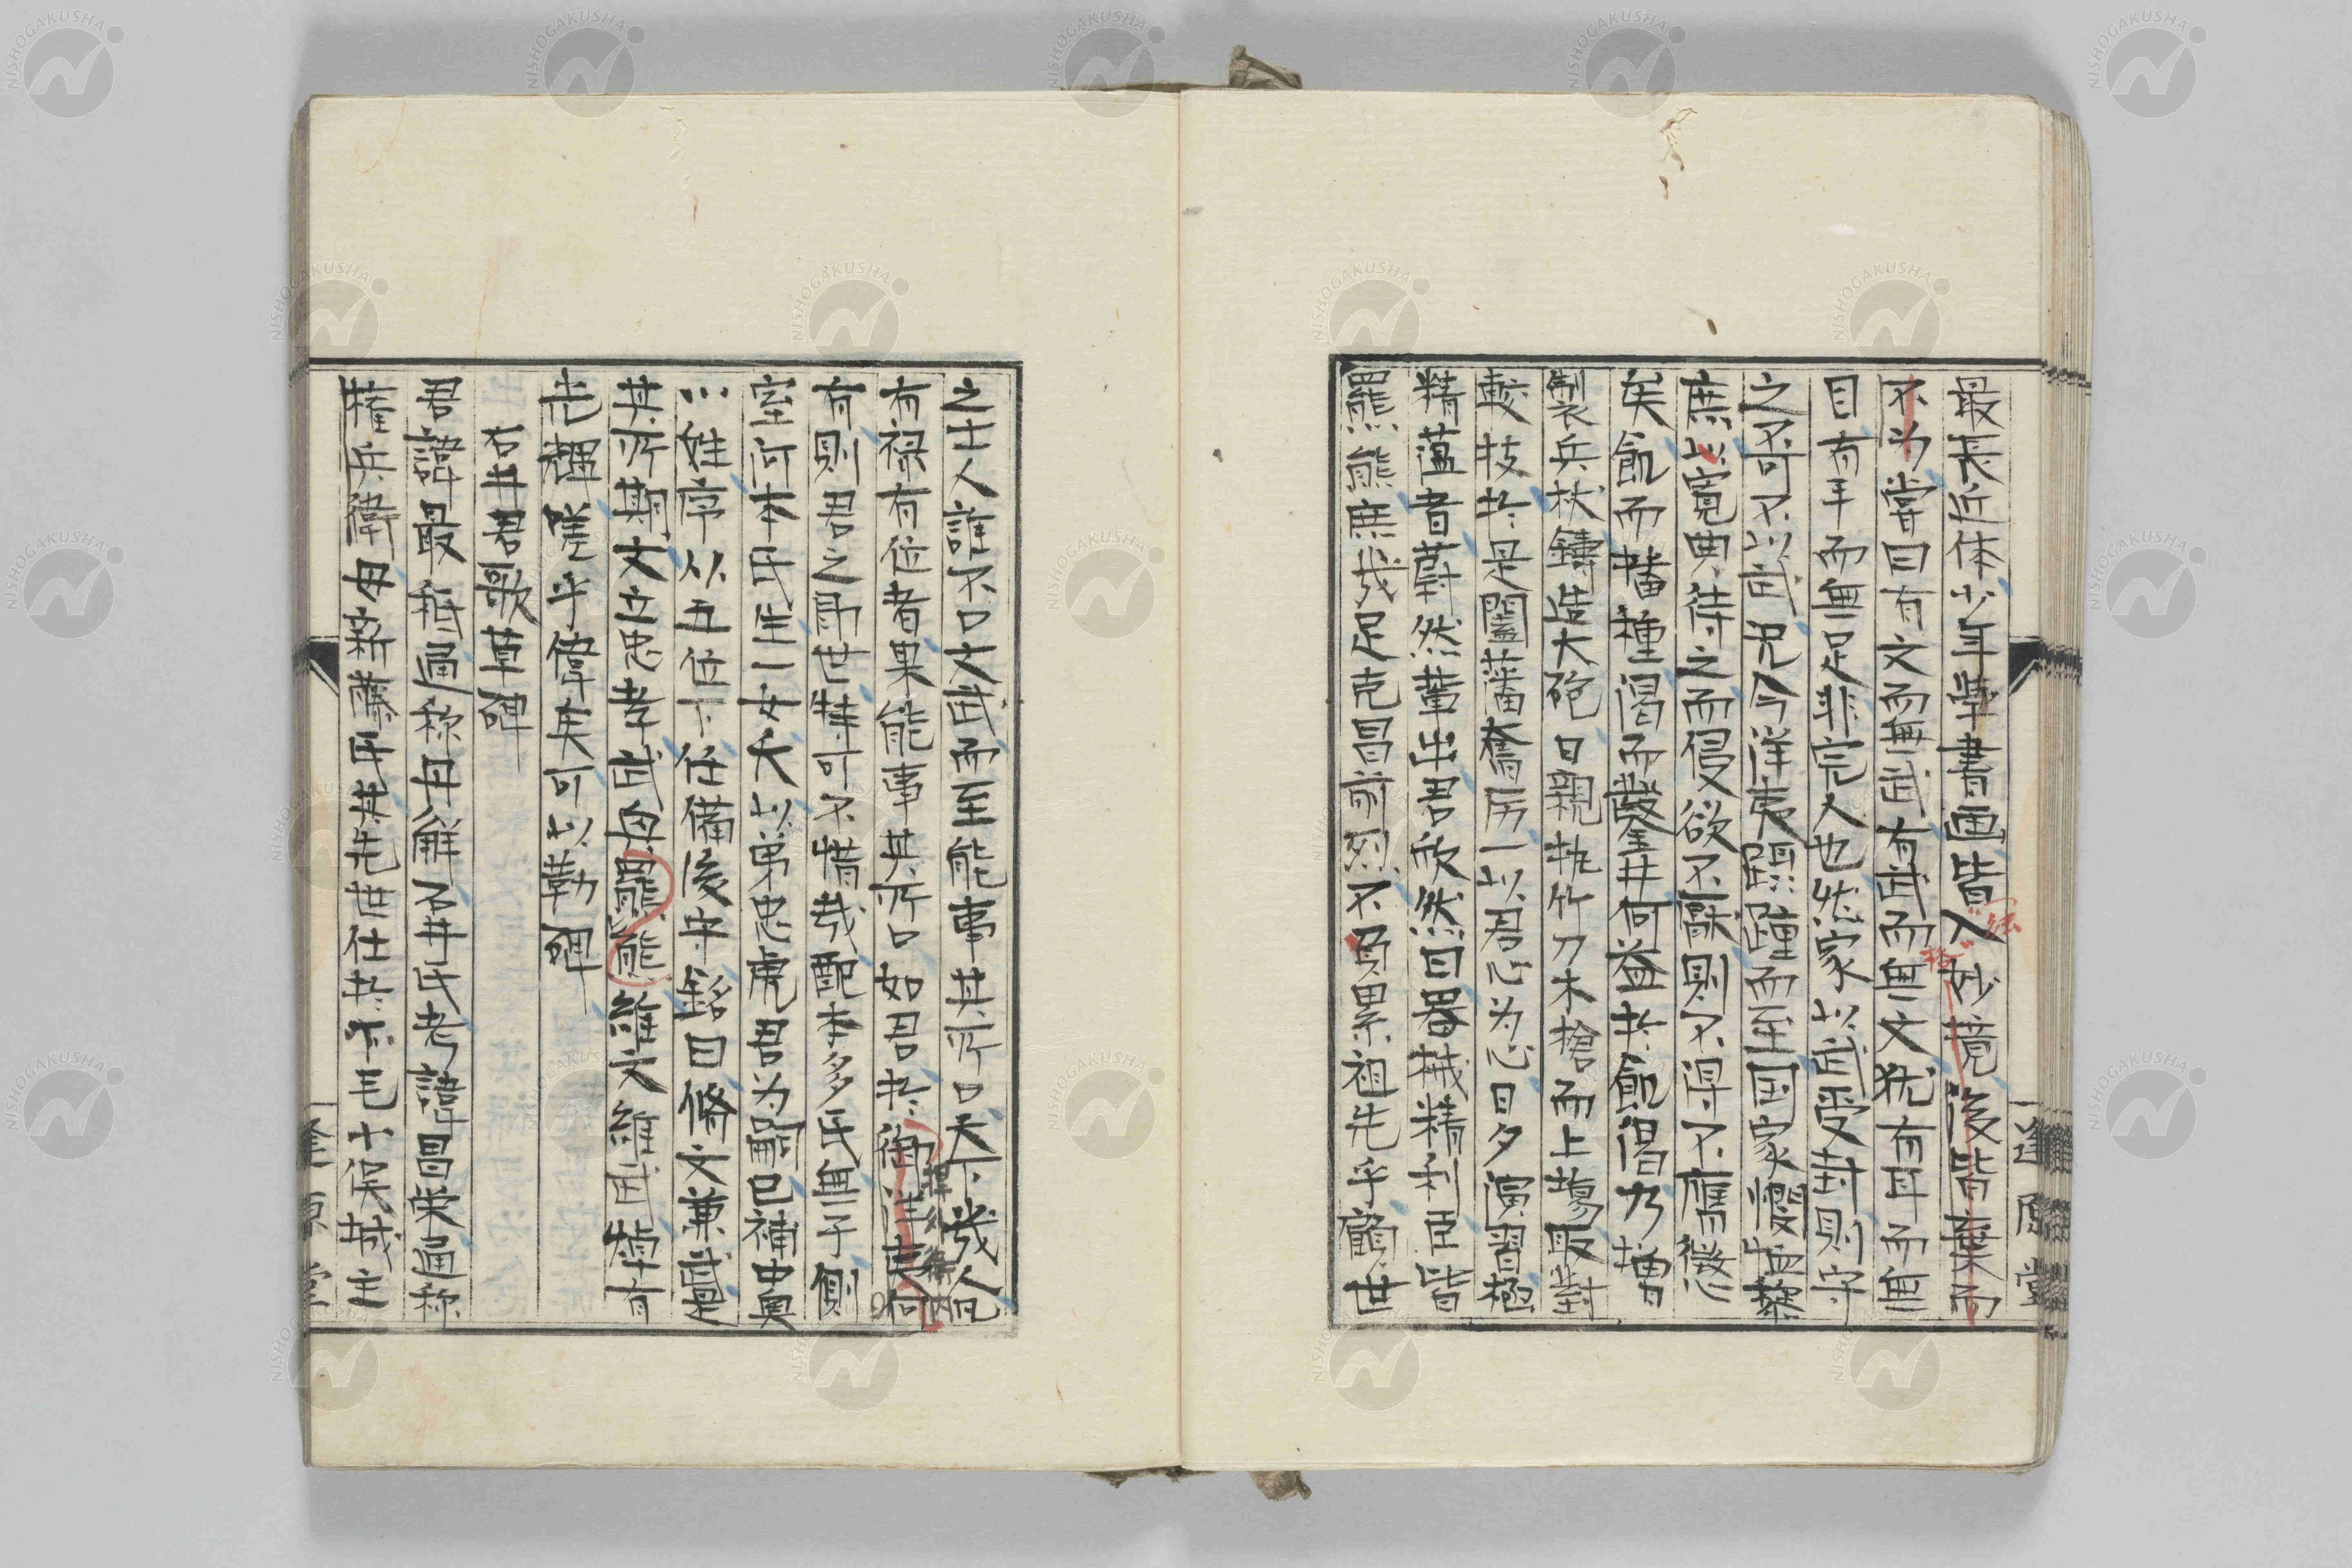 最長近体少年學書画皆入妙境後皆棄而
不為嘗曰有文而無武有武而無文猶有耳而無
目有手而無足非完人也然家以武受封則守
之不可不以武況今洋夷踵而至国家憫黎
庶以寛典待之而侵欲不厭則不得不膺懲
矣飢而播種渇而鑿井何益於飢渇乃増
製兵杖鑄造大砲日親執竹刀木槍而上場取對
較技於是闔藩奮厉一以君心为心日夕演習極
精蘊者蔚然輩出君欣然曰器械精利臣皆
羆熊庶幾足克昌前烈不負累祖先乎顧世
之士人誰不口文武而至能事其所口天下幾人况
有禄有位者果能事其所口如君於禦洋夷何
有則君之即世特可不惜哉配本多氏無子側
室河本氏生一女夭以弟忠虎君为嗣已補中奥
小姓序从五位下任備後守銘曰脩文兼武是
其所期文立忠孝武毋羆熊維文維武煥有
光輝嗟乎偉矣可以勒碑
石井君歌草碑
君諱最毓通称毋觧石井氏考諱昌榮通称
権兵衛母斎藤氏其先世仕於下毛小俣城主
逢原堂
逢原堂
NISHOGAKUSHA